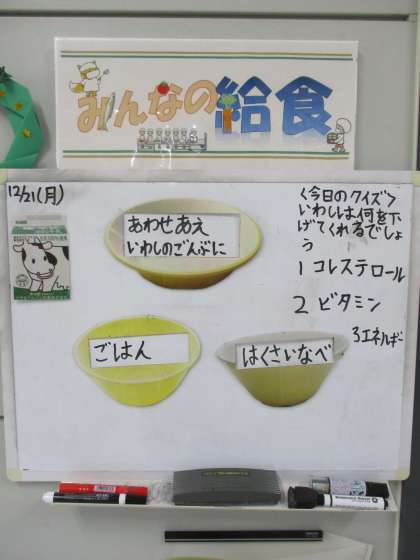 みんなの給食
12/21(月)
あわせあえ
いわしのごんぶに
ごはん
はくさいなべ
〈今日のクイズ〉
いわしは何を下
げてくれるでしょ
う
1 コレステロール
2 ビタミン
3エネルギー